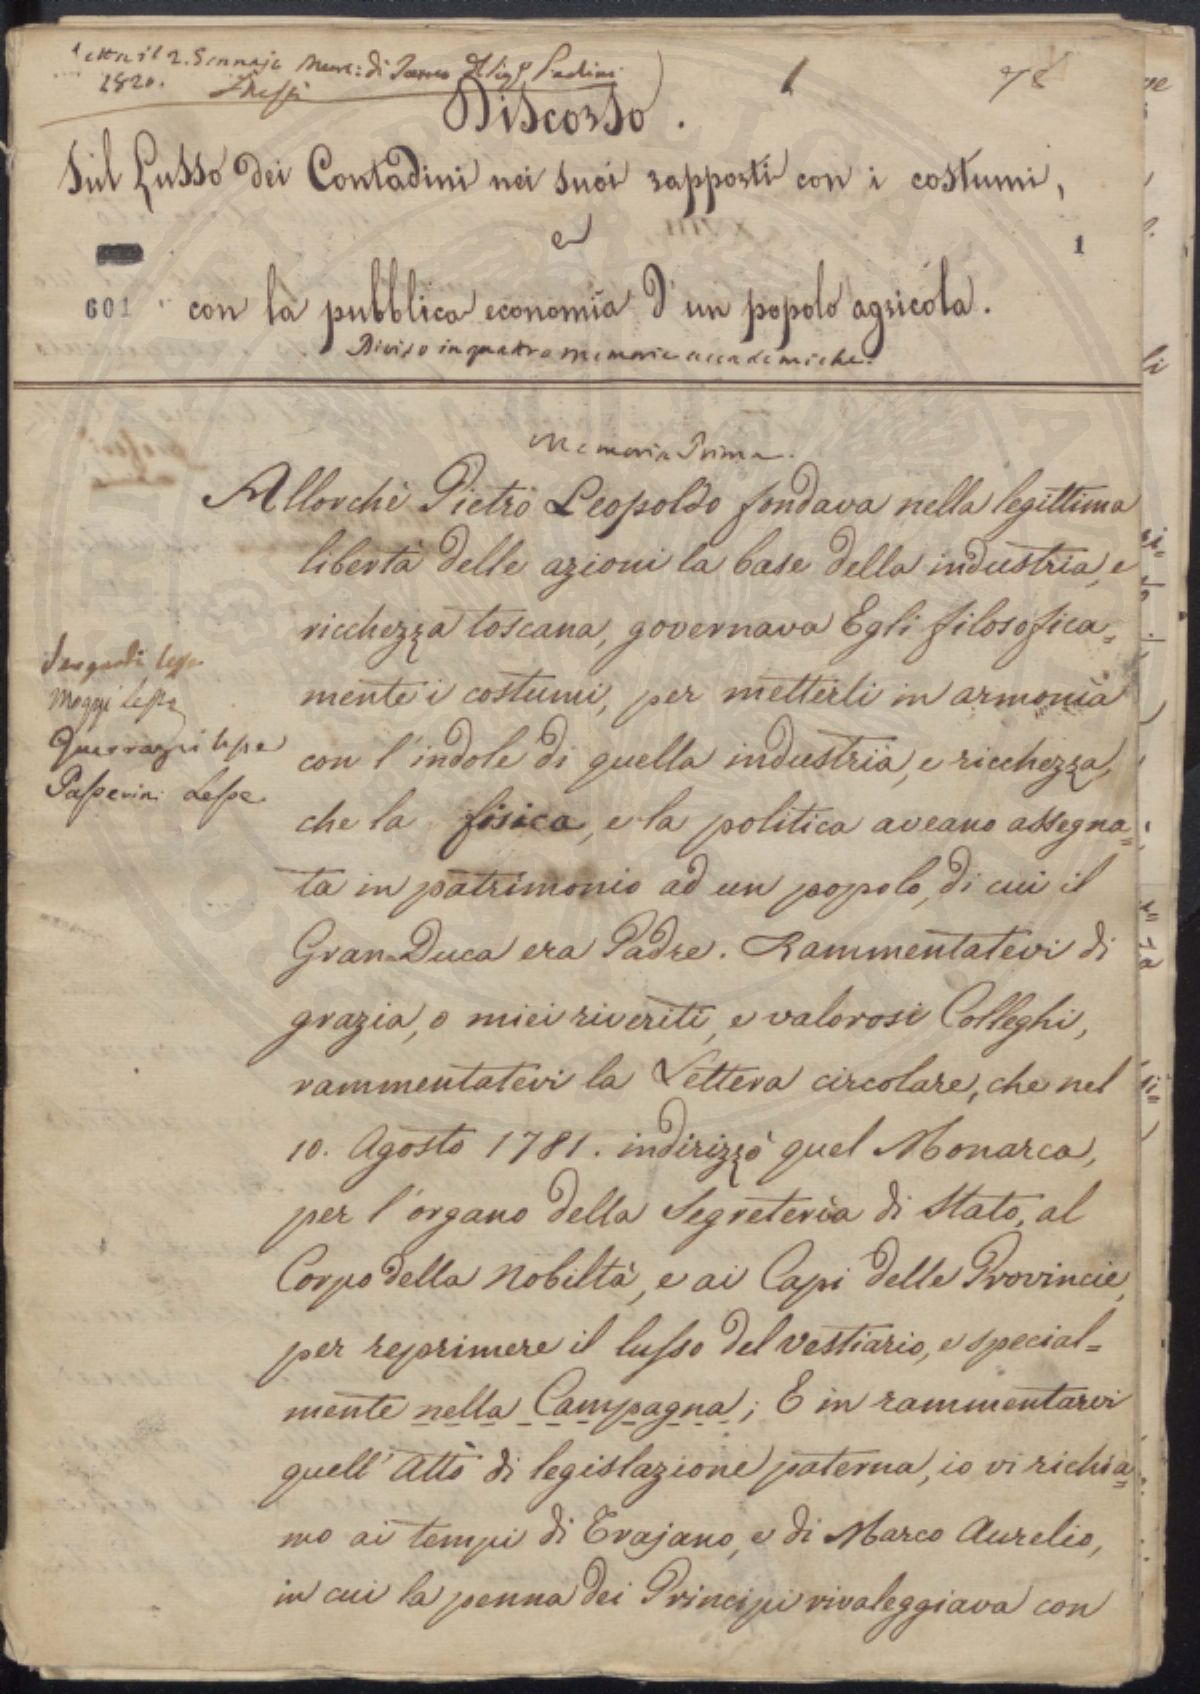 il 2. Gennajo
1820.
1
Discorso.
Sul Lusso dei Contadini nei suoi rapporti con i costumi,
e
1
601
con la pubblica economia d'un popolo agricola.
Diviso in quattro memorie accademiche.
Memoria Prima.
Allorchè Pietro Leopoldo fondava nella legittima
libertà delle azioni la base della industria, e
ricchezza toscana, governava Egli filosofica=
mente i costumi, per metterli in armonia
con l'indole di quella industria, e ricchezza,
che la fisica, e la politica aveano assegna=
ta in patrimonio ad un popolo, di cui il
Gran-Duca era Padre. Rammentatevi di
grazia, o miei riveriti, e valorosi Colleghi,
rammentatevi la Lettera circolare, che nel
10. Agosto 1781. indirizzò quel Monarca,
per l'organo della Segreteria di Stato, al
Corpo della Nobiltà, e ai Capi delle Provincie,
per reprimere il lusso del vestiario, e special=
mente nella Campagna; E in rammentarvi
quell'Atto di legislazione paterna, io vi richia=
mo ai tempi di Trajano, e di Marco Aurelio,
in cui la penna dei Principi rivaleggiava con